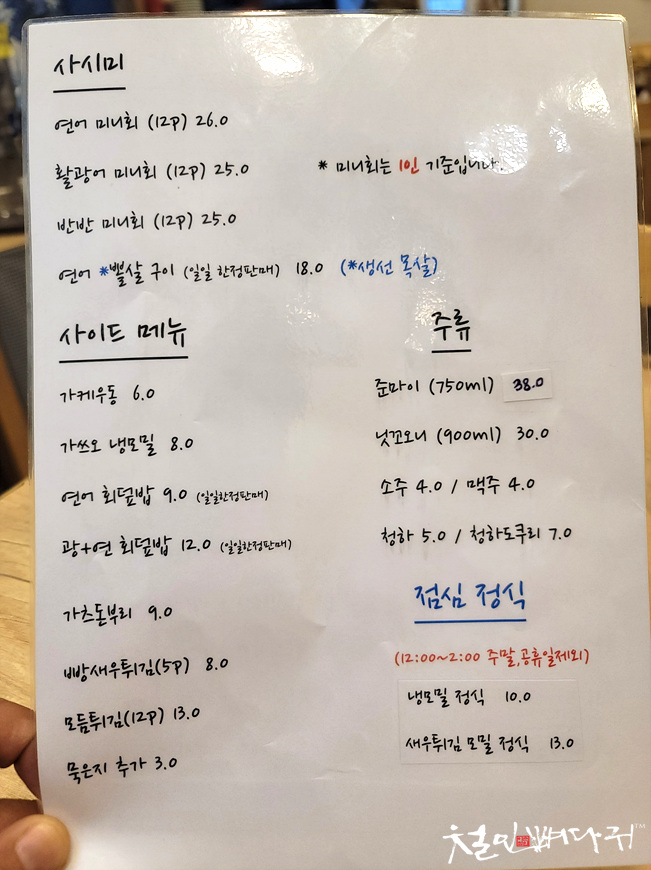 사시미
연어 미니회 (12p) 26.0
활광어 미니회 (12p) 25.0
* 미니회는 1인 기준입니다.
반반 미니회 (12p) 25.0
연어 *뽈살 구이 (일일 한정판매) 18.0 (*생선 목살)
사이드 메뉴
가케우동 6.0
가쓰오 냉모밀 8.0
연어 회덮밥 9.0 (일일한정판매)
광+연 회덮밥 12.0 (일일한정판매)
가츠돈부리 9.0
빵새우튀김(5p) 8.0
모듬튀김(12p) 13.0
묵은지 추가 3.0
주류
준마이 (750ml) 38.0
닛꼬오니 (900ml) 30.0
소주 4.0 / 맥주 4.0
청하 5.0 / 청하도쿠리 7.0
점심 정식
(12:00~2:00 주말,공휴일제외)
냉모밀 정식 10.0
새우튀김 모밀 정식 13.0
철인뼈다귀™